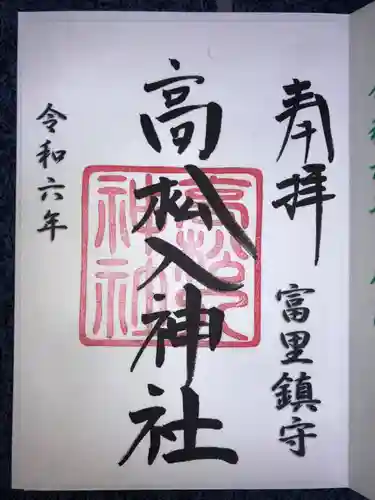 奉拝
富里鎮守
高松入神社
令和六年
高松入
神社